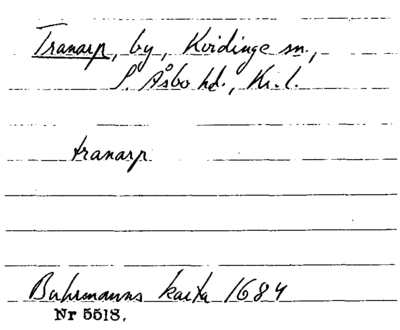 Tranarp, by, Kvidinge sn.,
S. Åsbo hd., Kr. l.
tranarp
Buhrmanns karta 1684
Nr 5518.